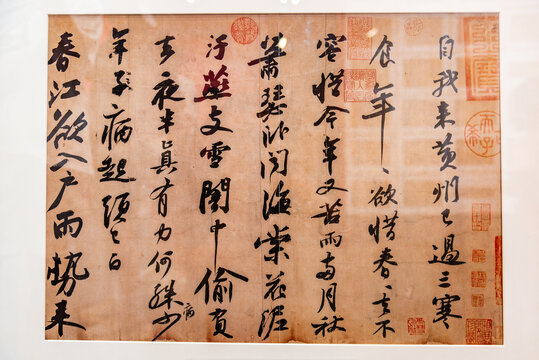 自我来黄州已過三寒
食年〻欲惜春〻去不
容惜今年又苦雨兩月秋
蕭瑟卧聞海棠花泥
汙燕支雪闇中偷負
去夜半真有力何殊少
病
年子病起頭已白
春江欲入戶雨勢来